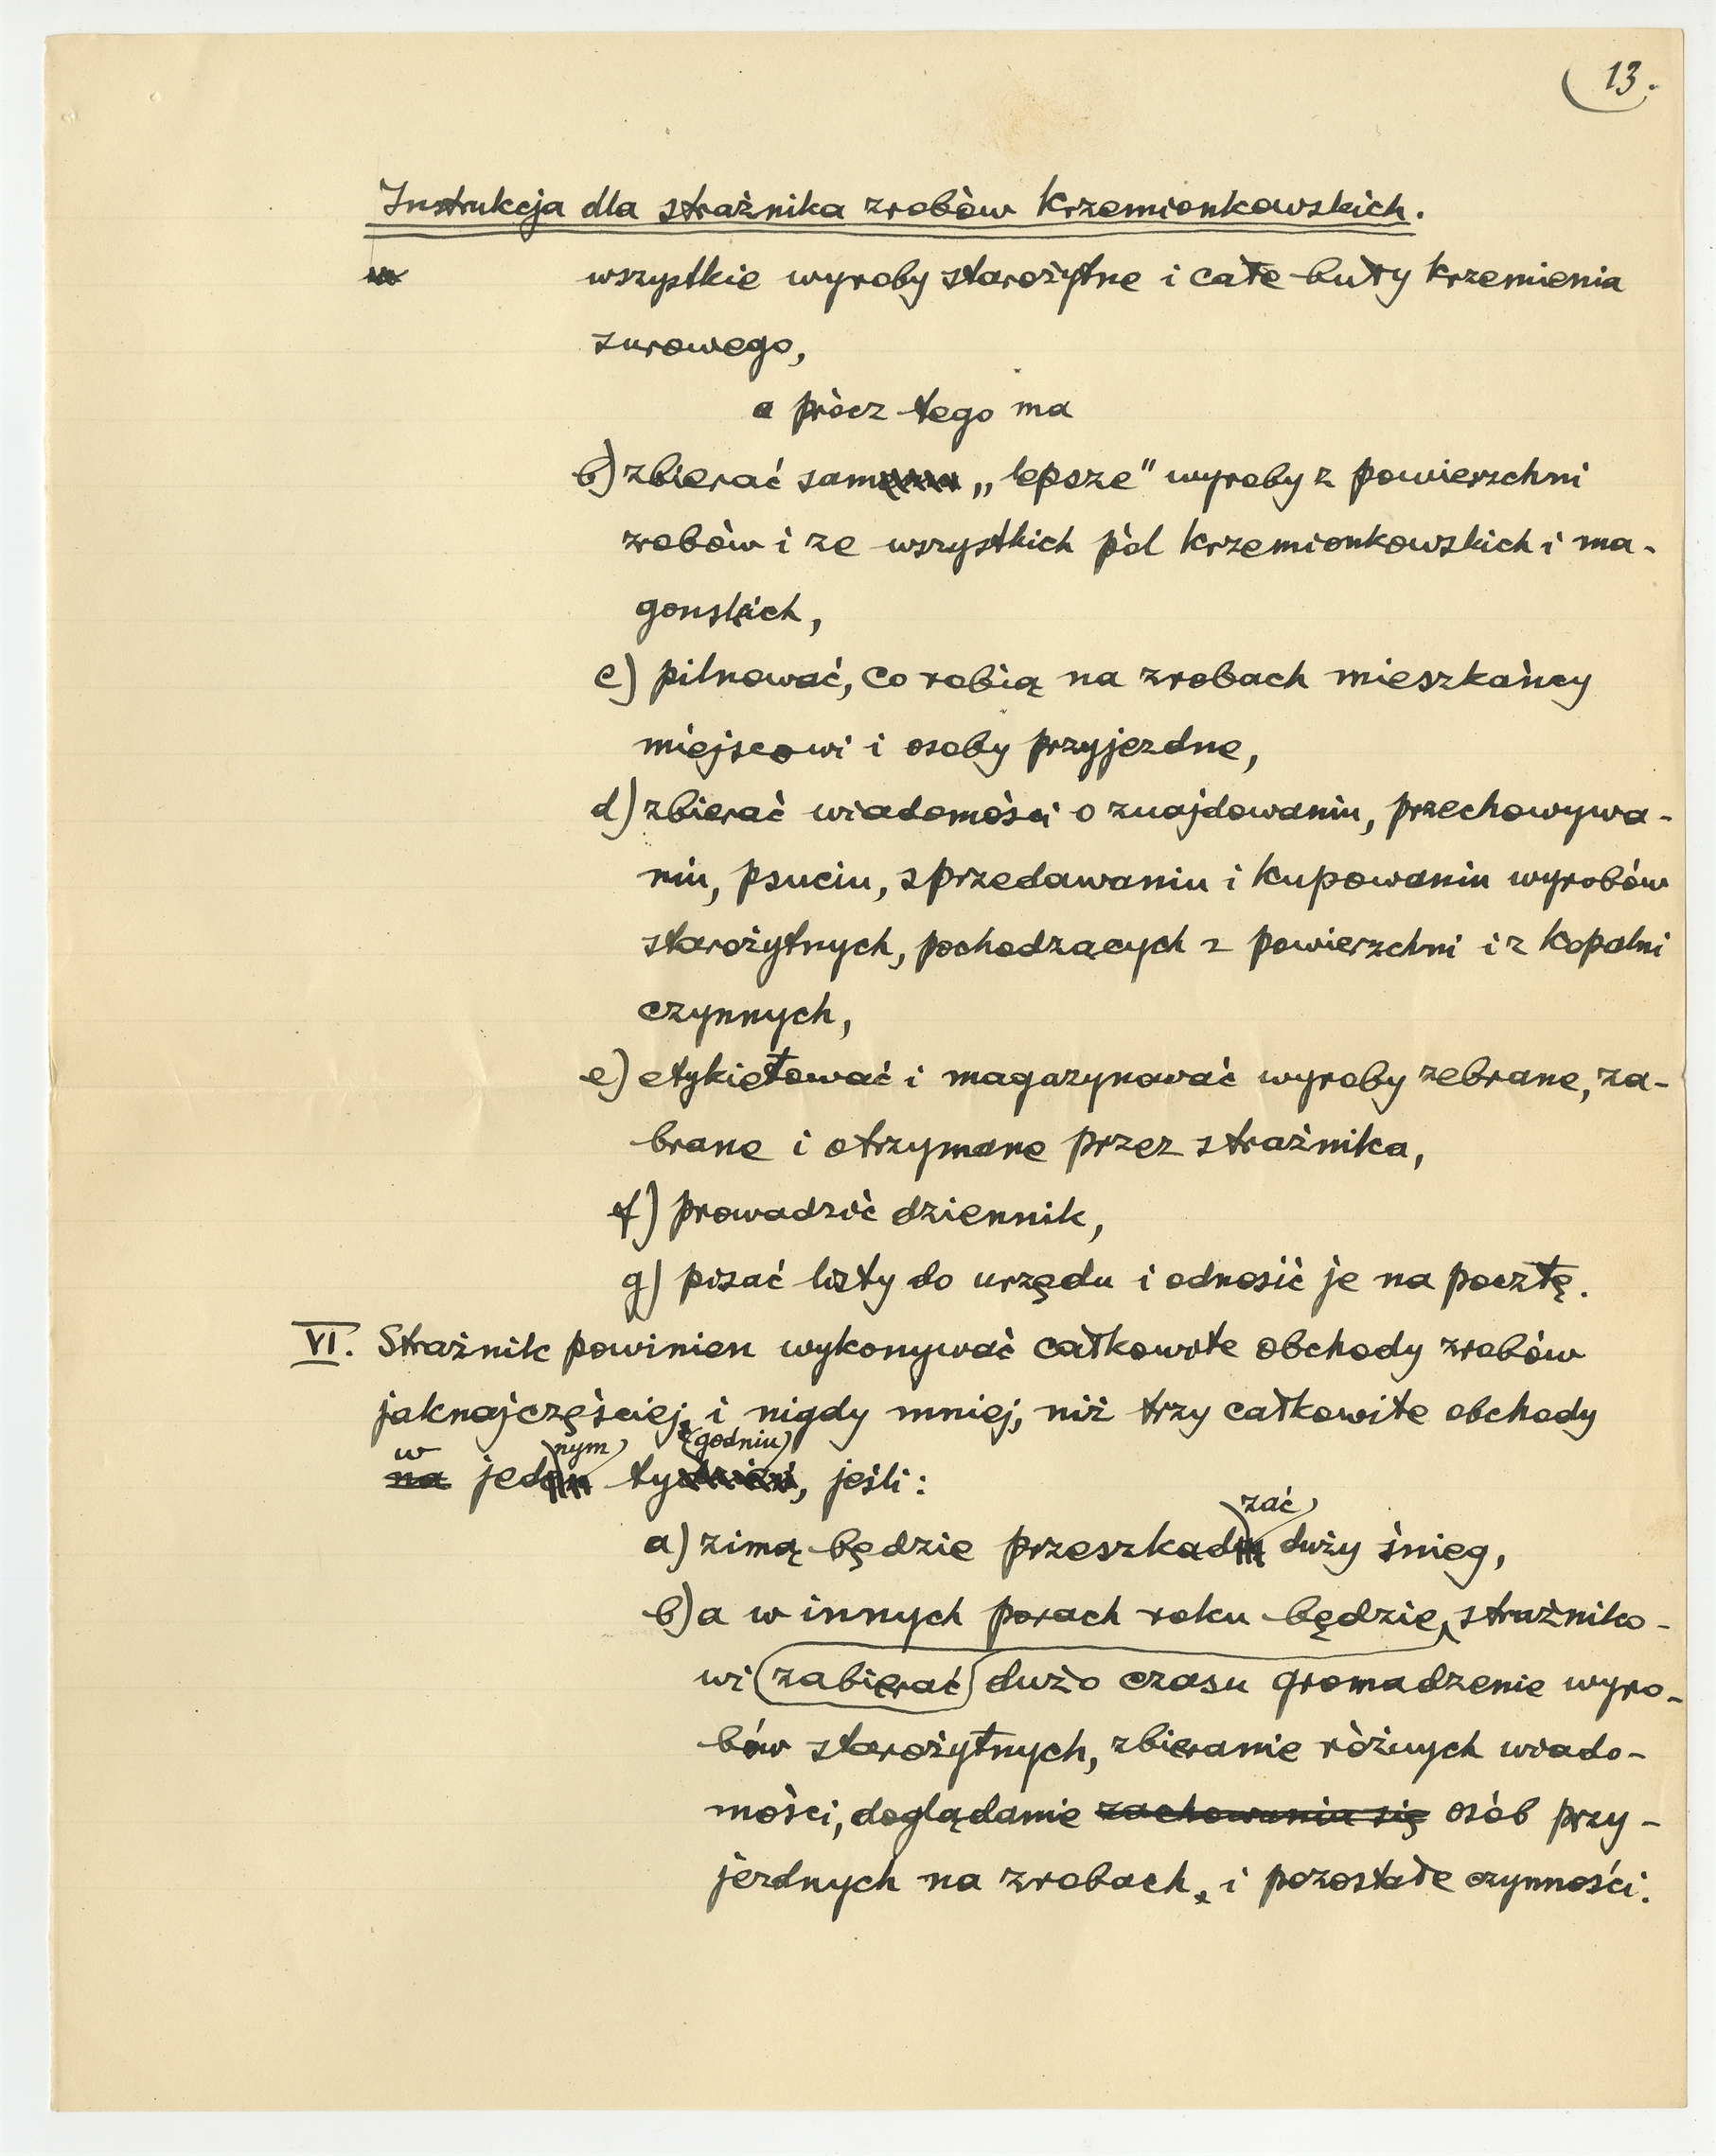 13.
Instrukcja dla strażnika zrobów Krzemionkowskich.
wszystkie wyroby starożytne i całe buły krzemienia
surowego,
a prócz tego ma
b) zbierać sam „lepsze" wyroby z powierzchni
zrobów i ze wszystkich pól krzemionkowskich i ma-
gonskich,
c) pilnować, co robią na zrobach mieszkańcy
miejscowi i osoby przyjezdne,
d) zbierać wiadomości o znajdowaniu, przechowywa-
niu, psuciu, sprzedawaniu i kupowaniu wyrobów
starożytnych, pochodzących z powierzchni i z kopalni
czynnych,
e) etykietować i magazynować wyroby zebrane, za-
brane i otrzymane przez strażnika,
f) prowadzić dziennik,
g) pisać listy do urzędu i odnosić je na pocztę.
VI. Strażnik powinien wykonywać całkowite obchody zrobów
jaknajczęściej, i nigdy mniej, niż trzy całkowite obchody
w nym godniu
na jeden tydzień, jeśli:
zać
a) zimą będzie przeszkad duży śnieg,
b) a w innych porach roku będzie strażniko-
wi zabierać dużo czasu gromadzenie wyro-
bów starożytnych, zbieranie różnych wiado-
mości, doglądanie zachowania się osób przy-
jezdnych na zrobach, i pozostałe czynności.